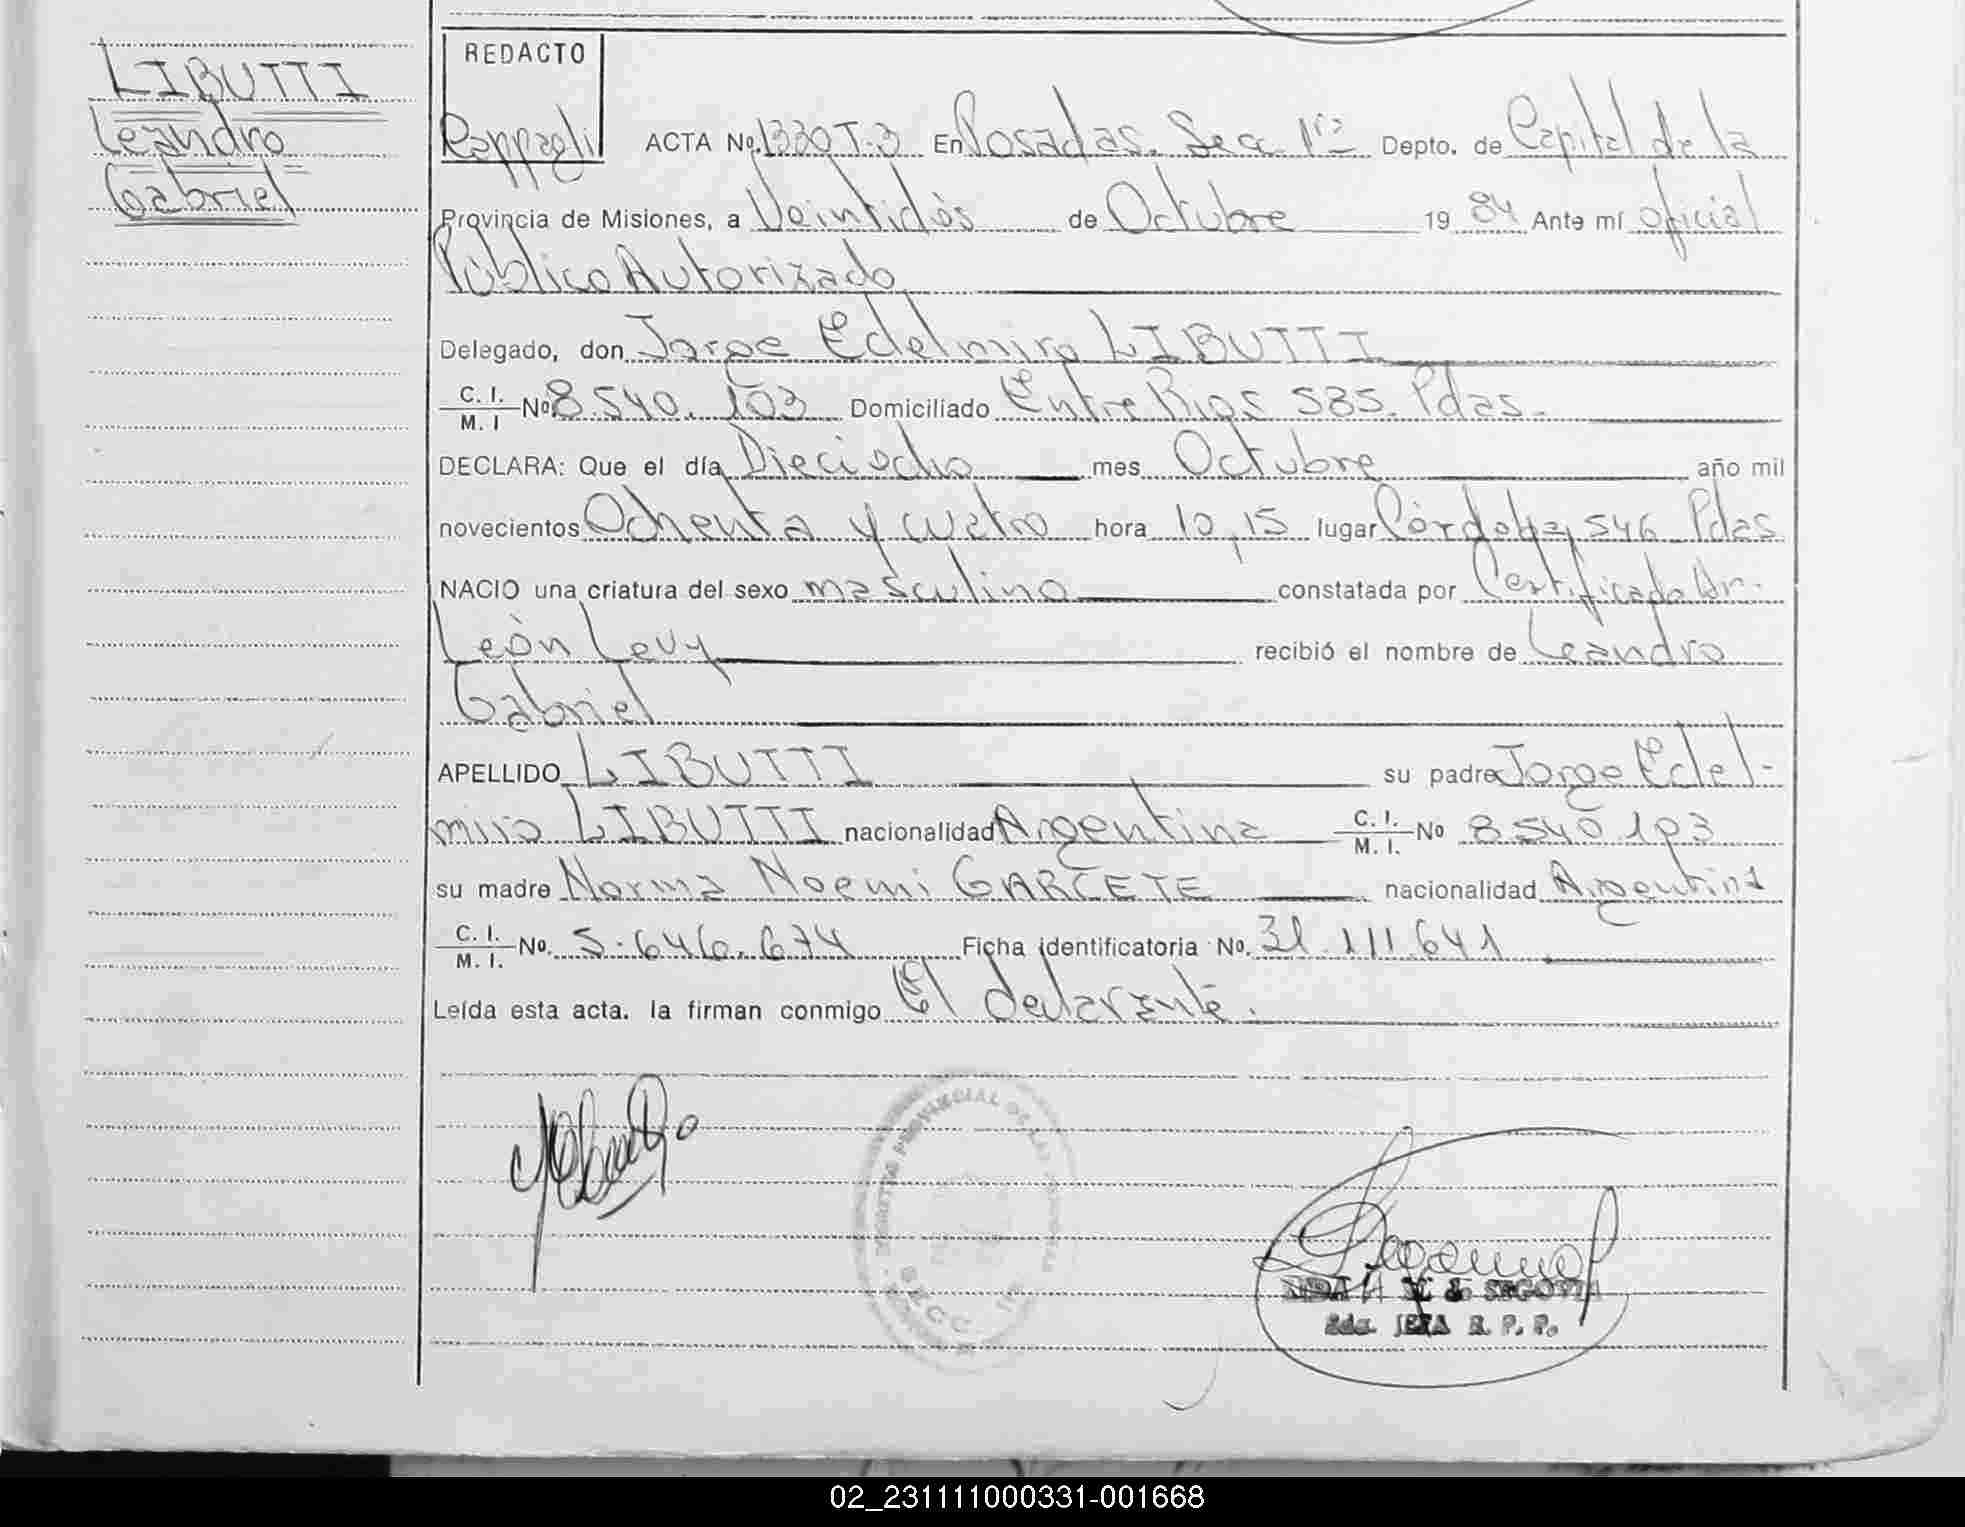 LIBUTTI
Leandro
Gabriel
REDACTO
Rappagli ACTA Nº 1330 T.3 En Posadas. Sec. 1ra Depto. de Capital de la
Provincia de Misiones, a Veintidós de Octubre 1984 Ante mí oficial
Público Autorizado
Delegado, don Jorge Edelmiro LIBUTTI
C. I. / M. I Nº 8.540.103 Domiciliado Entre Rios 585. Pdas.
DECLARA: Que el día Dieciocho mes Octubre año mil
novecientos Ochenta y cuatro hora 10,15 lugar Córdoba, 546 Pdas
NACIO una criatura del sexo masculino constatada por Certificado Dr.
León Levy recibió el nombre de Leandro
Gabriel
APELLIDO LIBUTTI su padre Jorge Edel-
miro LIBUTTI nacionalidad Argentina C. I. / M. I. Nº 8.540.103
su madre Norma Noemi GARCETE nacionalidad Argentina
C. I. / M. I. No. 5.646.674 Ficha identificatoria No. 31.111.641
Leída esta acta. la firman conmigo El declarante.
PROVINCIAL DE LAS
SECC.
SEGOVIA
2da. JEFA R. P. P.
02_231111000331-001668